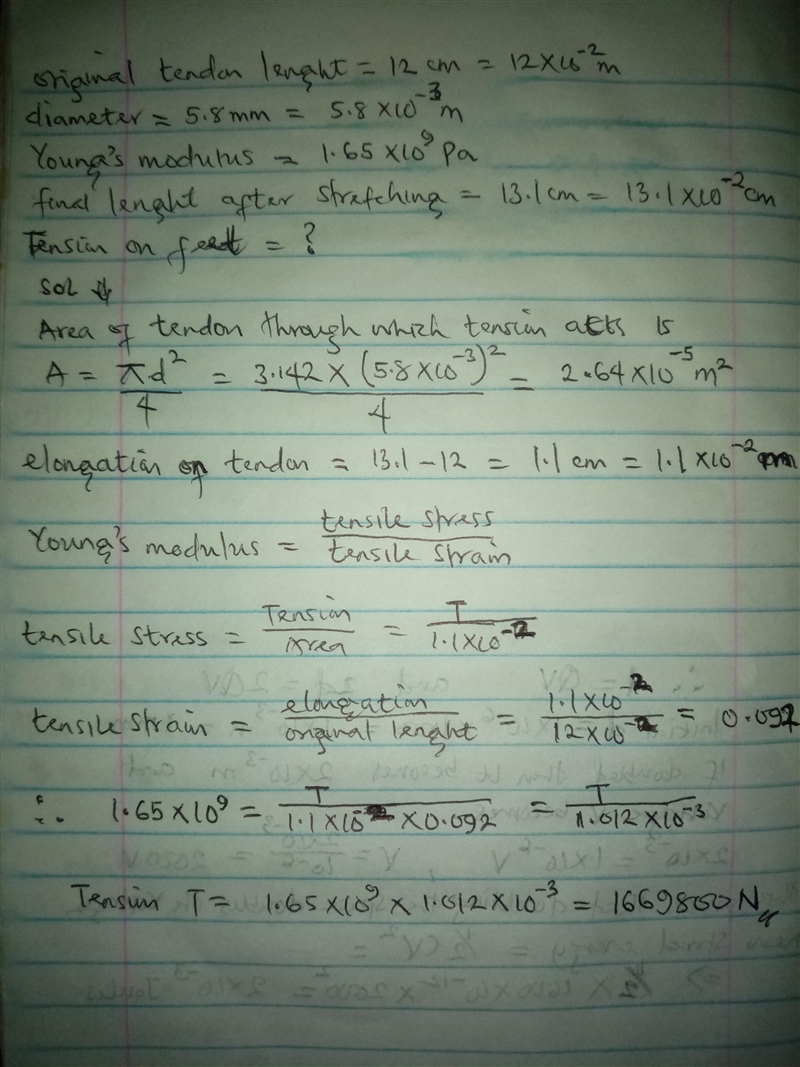 original tendon lenght = 12 cm = 12×10⁻²m
diameter = 5.8 mm = 5.8 ×10⁻³m
Young's modulus = 1.65 ×10⁹ Pa
find lenght after stretching = 13.1cm = 13.1×10⁻²cm
Tension on feet = ?
Sol ⇓
Area of tendon through which tension acts is
A = πd²/4 = 3.142 × (5.8×10⁻³)²/4 = 2.64×10⁻⁵ m²
elongation of tendon = 13.1 – 12 = 1.1 cm = 1.1 ×10⁻² m
Young's modulus = tensile stress/tensile strain
tensile stress = Tension/Area = T/1.1×10⁻²
tensile strain = elongation/original lenght = 1.1×10⁻²/12×10⁻² = 0.092
∴ 1.65×10⁹ = T/1.1×10⁻² ×0.092 = T/1.012×10⁻³
Tension T = 1.65×10⁹ × 1.012×10⁻³ = 1669800 N